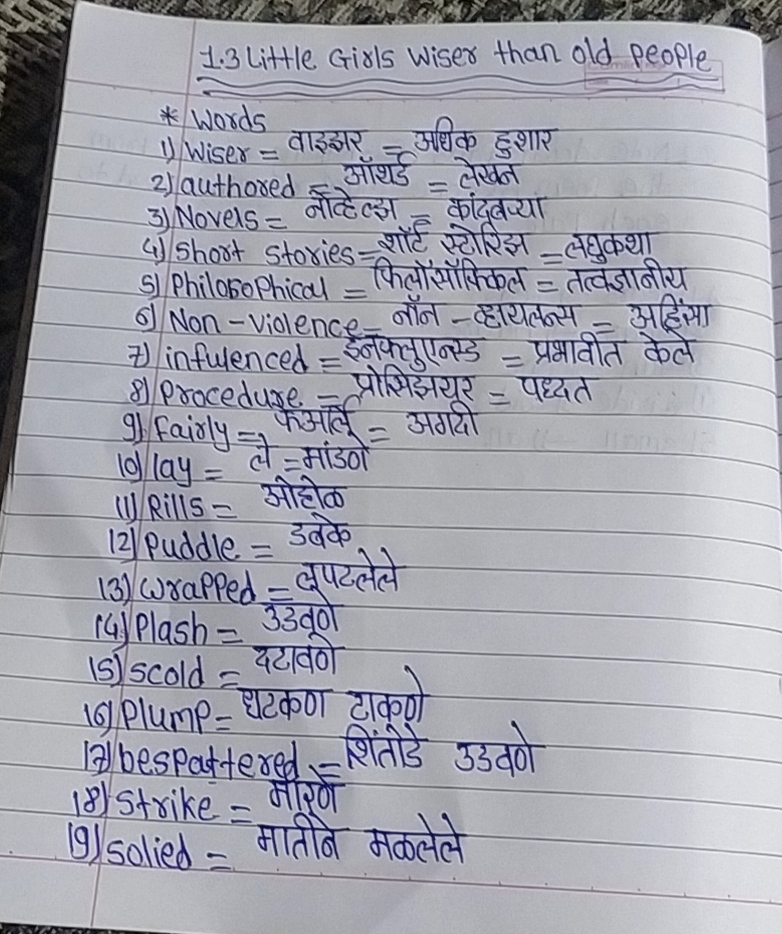 1.3 Little Girls Wiser than old people
* Words
1) Wiser = वाइझर = अधिक हुशार
2) authored = ऑथर्ड = लेखन
3) Novels = नॉव्हेल्झ = कादंबऱ्या
4) Short stories = शॉर्ट स्टोरिझ = लघुकथा
5) Philosophical = फिलॉसॉफिकल = तत्वज्ञानीय
6) Non-violence = नॉन-व्हायलन्स = अहिंसा
7) infulenced = इनफ्लुएन्स्ड = प्रभावीत केले
8) Procedure = प्रोसिझयूर = पध्दत
9) fairly = फेअर्लि = अगदी
10) lay = ले = मांडणे
11) Rills = ओहोळ
12) puddle = डबके
13) wrapped = लपटलेले
14) Plash = उडवणे
15) scold = दटावणे
16) Plump = धटकण टाकणे
17) bespattered = शिंतोडे उडवणे
18) strike = मारणे
19) solied = मातीने मळलेले